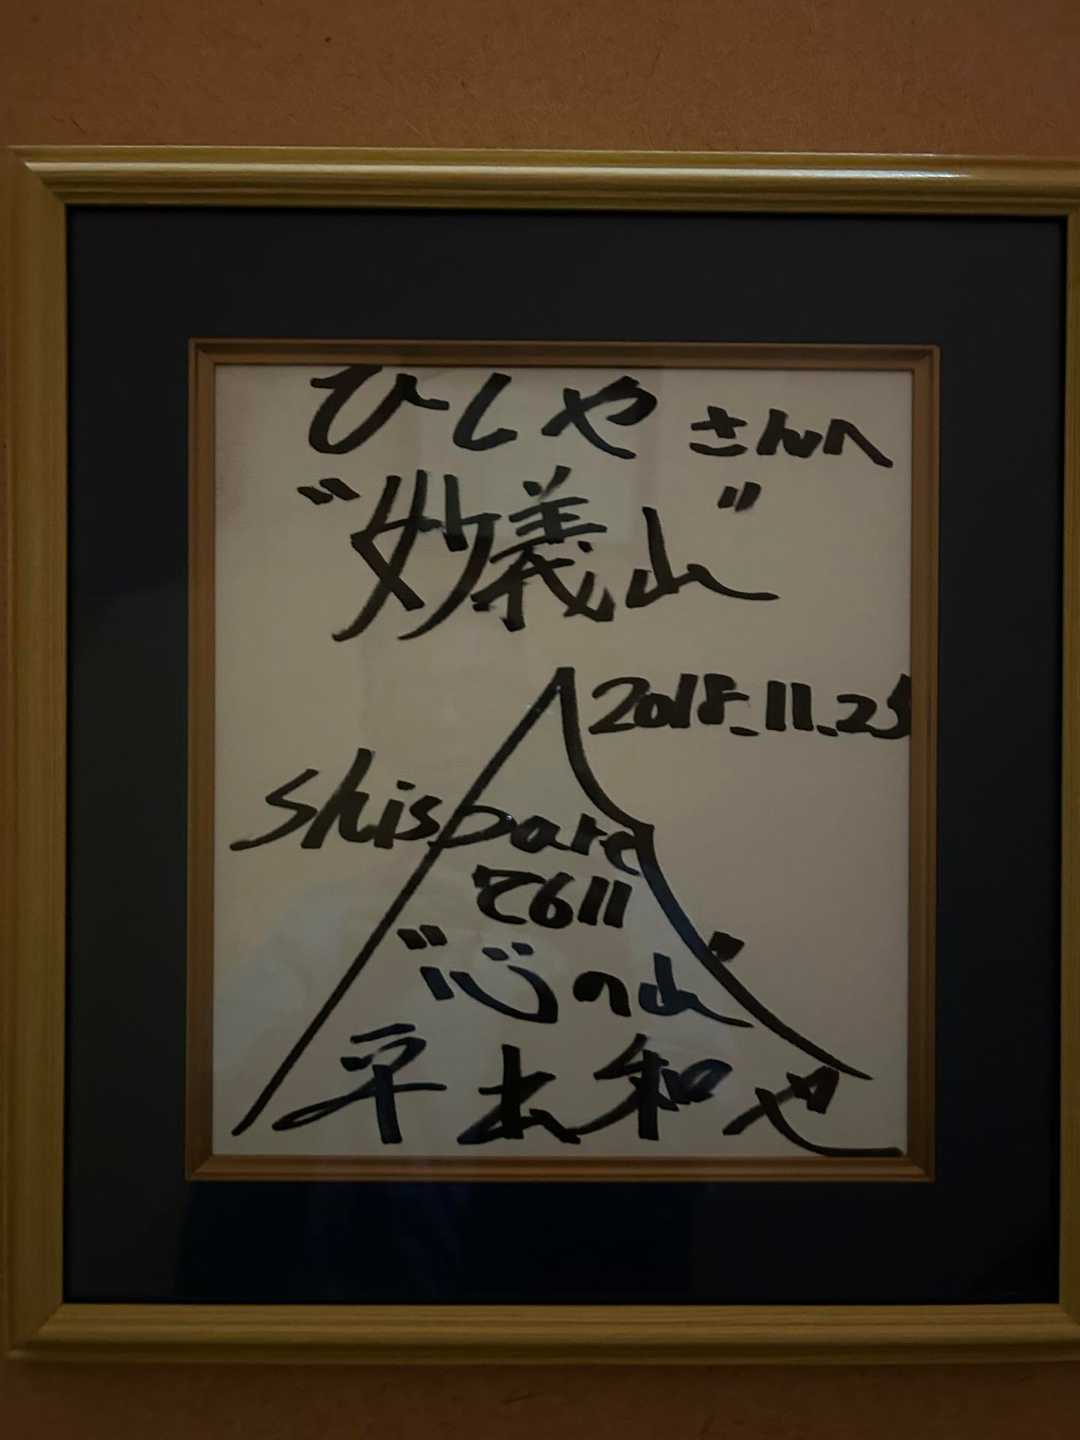 ひしやさんへ
"妙義山"
2018.11.25
Shispare
7611
"心の山"
平出和也